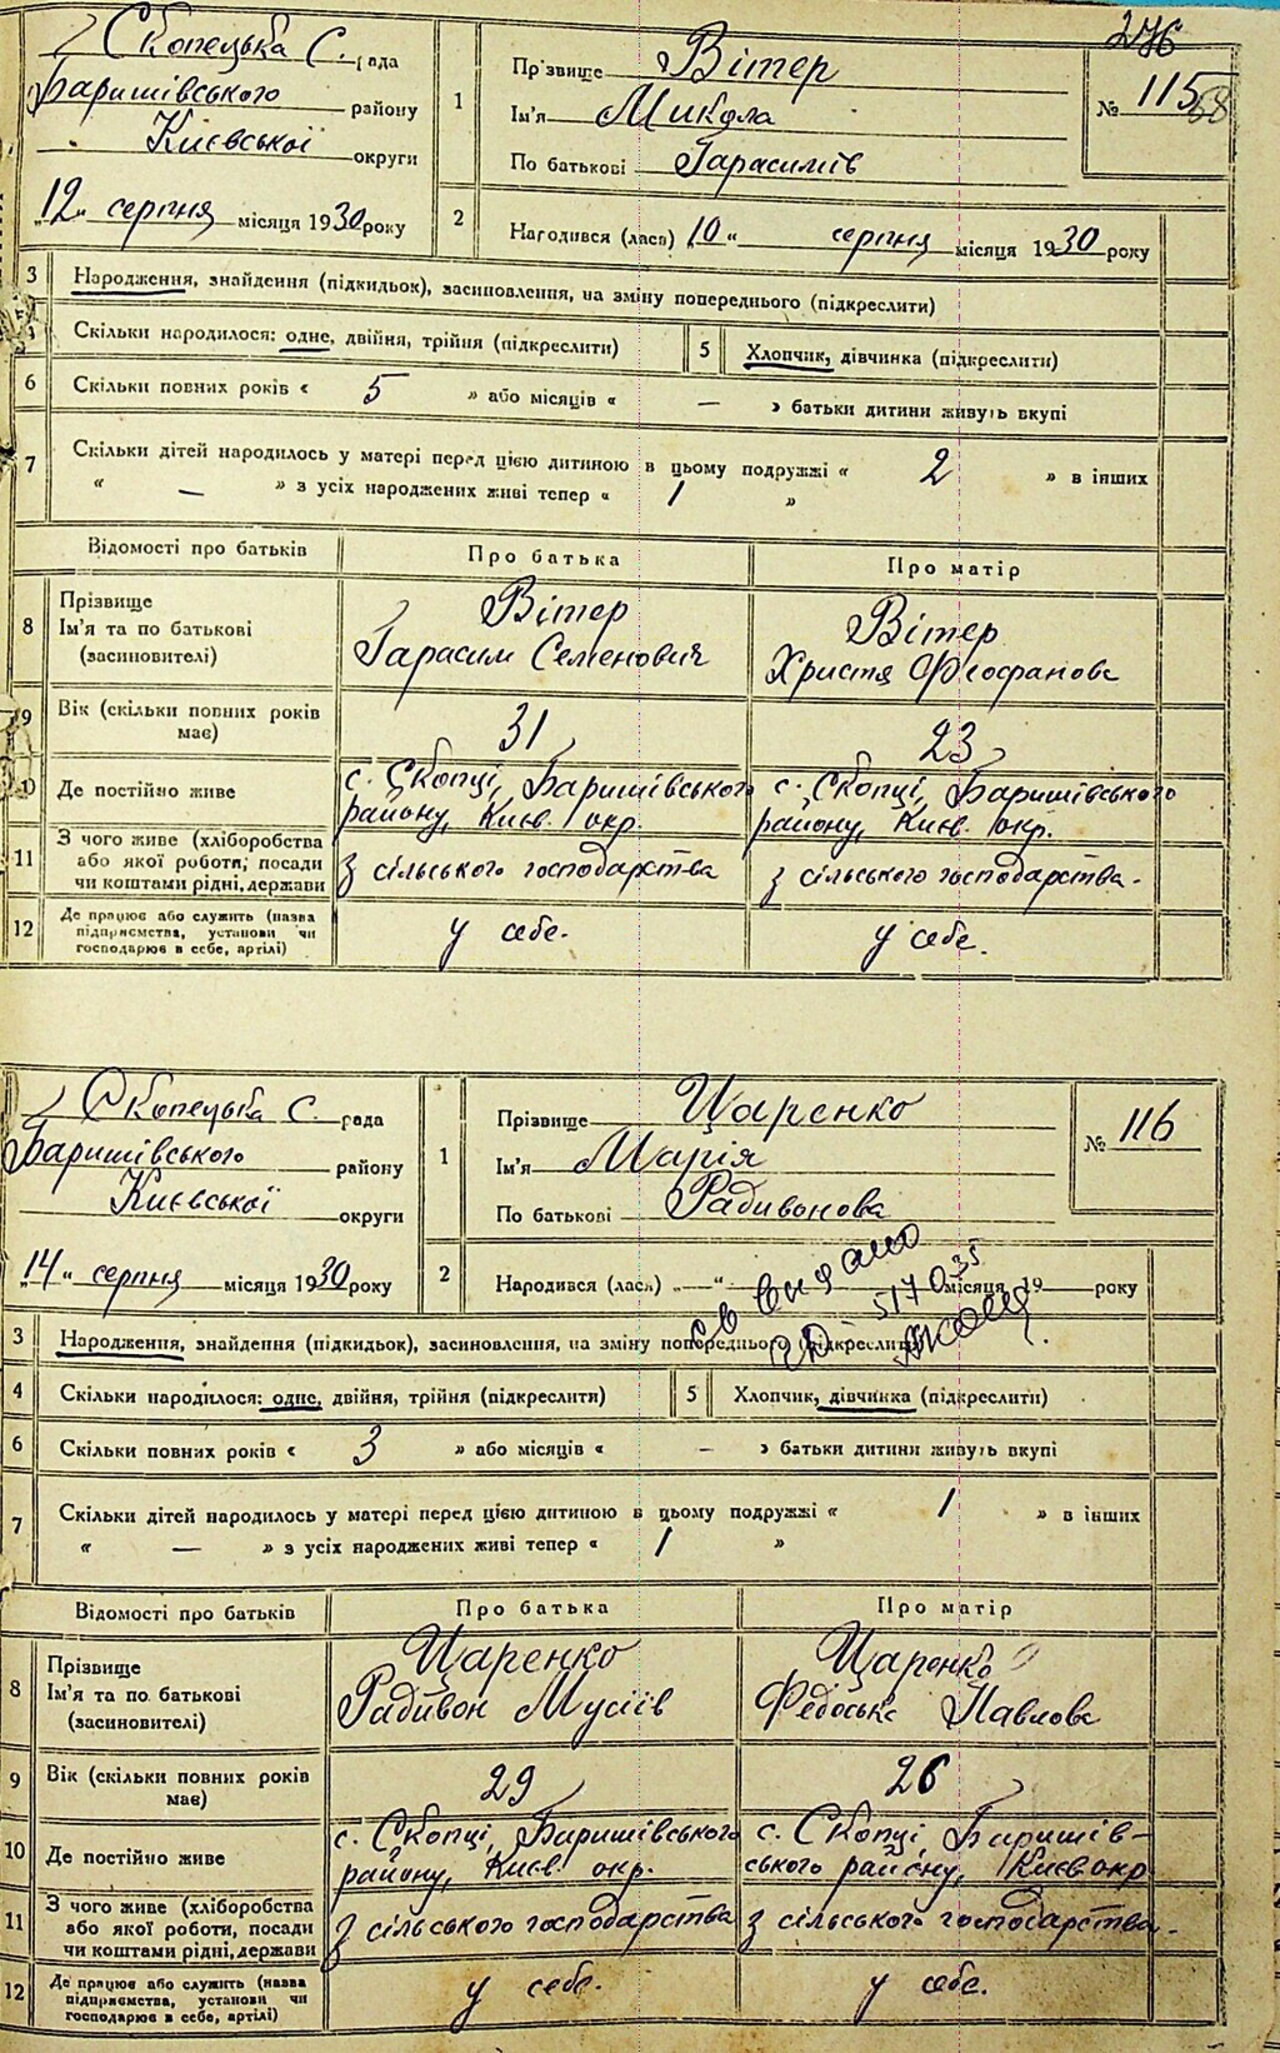 276
Скопецька С. рада
Баришівського району
Києвської округи
„12„ серпня місяця 1930 року
1
Прізвище Вітер
Ім'я Микола
По батькові Гарасимів
№ 115
68
2 Народився (лася) 10 „ серпня місяця 1930 року
3 Народження, знайдення (підкидьок), засиновлення, на зміну попереднього (підкреслити)
4 Скільки народилося: одне, двійня, трійня (підкреслити)
5 Хлопчик, дівчинка (підкреслити)
6 Скільки повних років « 5 » або місяців « — » батьки дитини живуть вкупі
7 Скільки дітей народилось у матері перед цією дитиною в цьому подружжі « 2 » в інших
« — » з усіх народжених живі тепер « 1 »
Відомості про батьків Про батька Про матір
8 Прізвище
Ім'я та по батькові
(засиновителі)
Вітер
Гарасим Семенович
Вітер
Христя Феофанова
9 Вік (скільки повних років
має)
31
23
10 Де постійно живе
с. Скопці, Баришівського
району, Києв. окр.
с. Скопці, Баришівського
району, Києв. окр.
11 З чого живе (хліборобства
або якої роботи, посади
чи коштами рідні, держави
з сільського господарства
з сільського господарства.
12 Де працює або служить (назва
підприємства, установи чи
господарює в себе, артілі)
у себе.
у себе.
Скопецька С. рада
Баришівського району
Києвської округи
„14„ серпня місяця 1930 року
1
Прізвище Царенко
Ім'я Марія
По батькові Радивонова
№ 116
2 Народився (лася) „ — “ місяця 19 року
св выдано
3 Народження, знайдення (підкидьок), засиновлення, на зміну попереднього (підкреслити)
4 Скільки народилося: одне, двійня, трійня (підкреслити)
5 Хлопчик, дівчинка (підкреслити)
6 Скільки повних років « 3 » або місяців « — » батьки дитини живуть вкупі
7 Скільки дітей народилось у матері перед цією дитиною в цьому подружжі « 1 » в інших
« — » з усіх народжених живі тепер « 1 »
Відомості про батьків Про батька Про матір
8 Прізвище
Ім'я та по батькові
(засиновителі)
Царенко
Радивон Мусіїв
Царенко
Федоська Павлова
9 Вік (скільки повних років
має)
29
26
10 Де постійно живе
с. Скопці, Баришівського
району, Києв. окр.
с. Скопці, Баришів-
ського району, Києв. окр
11 З чого живе (хліборобства
або якої роботи, посади
чи коштами рідні, держави
з сільського господарства
з сільського господарства.
12 Де працює або служить (назва
підприємства, установи чи
господарює в себе, артілі)
у себе.
у себе.